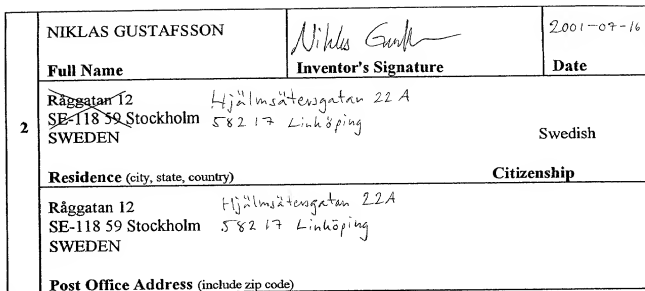 NIKLAS GUSTAFSSON
Niklas Gustafsson
2001-07-16
Full Name Inventor's Signature Date
2
Råggatan 12 Hjälmsätersgatan 22 A
SE-118 59 Stockholm 582 17 Linköping
SWEDEN Swedish
Residence (city, state, country) Citizenship
Råggatan 12 Hjälmsätersgatan 22A
SE-118 59 Stockholm 582 17 Linköping
SWEDEN
Post Office Address (include zip code)